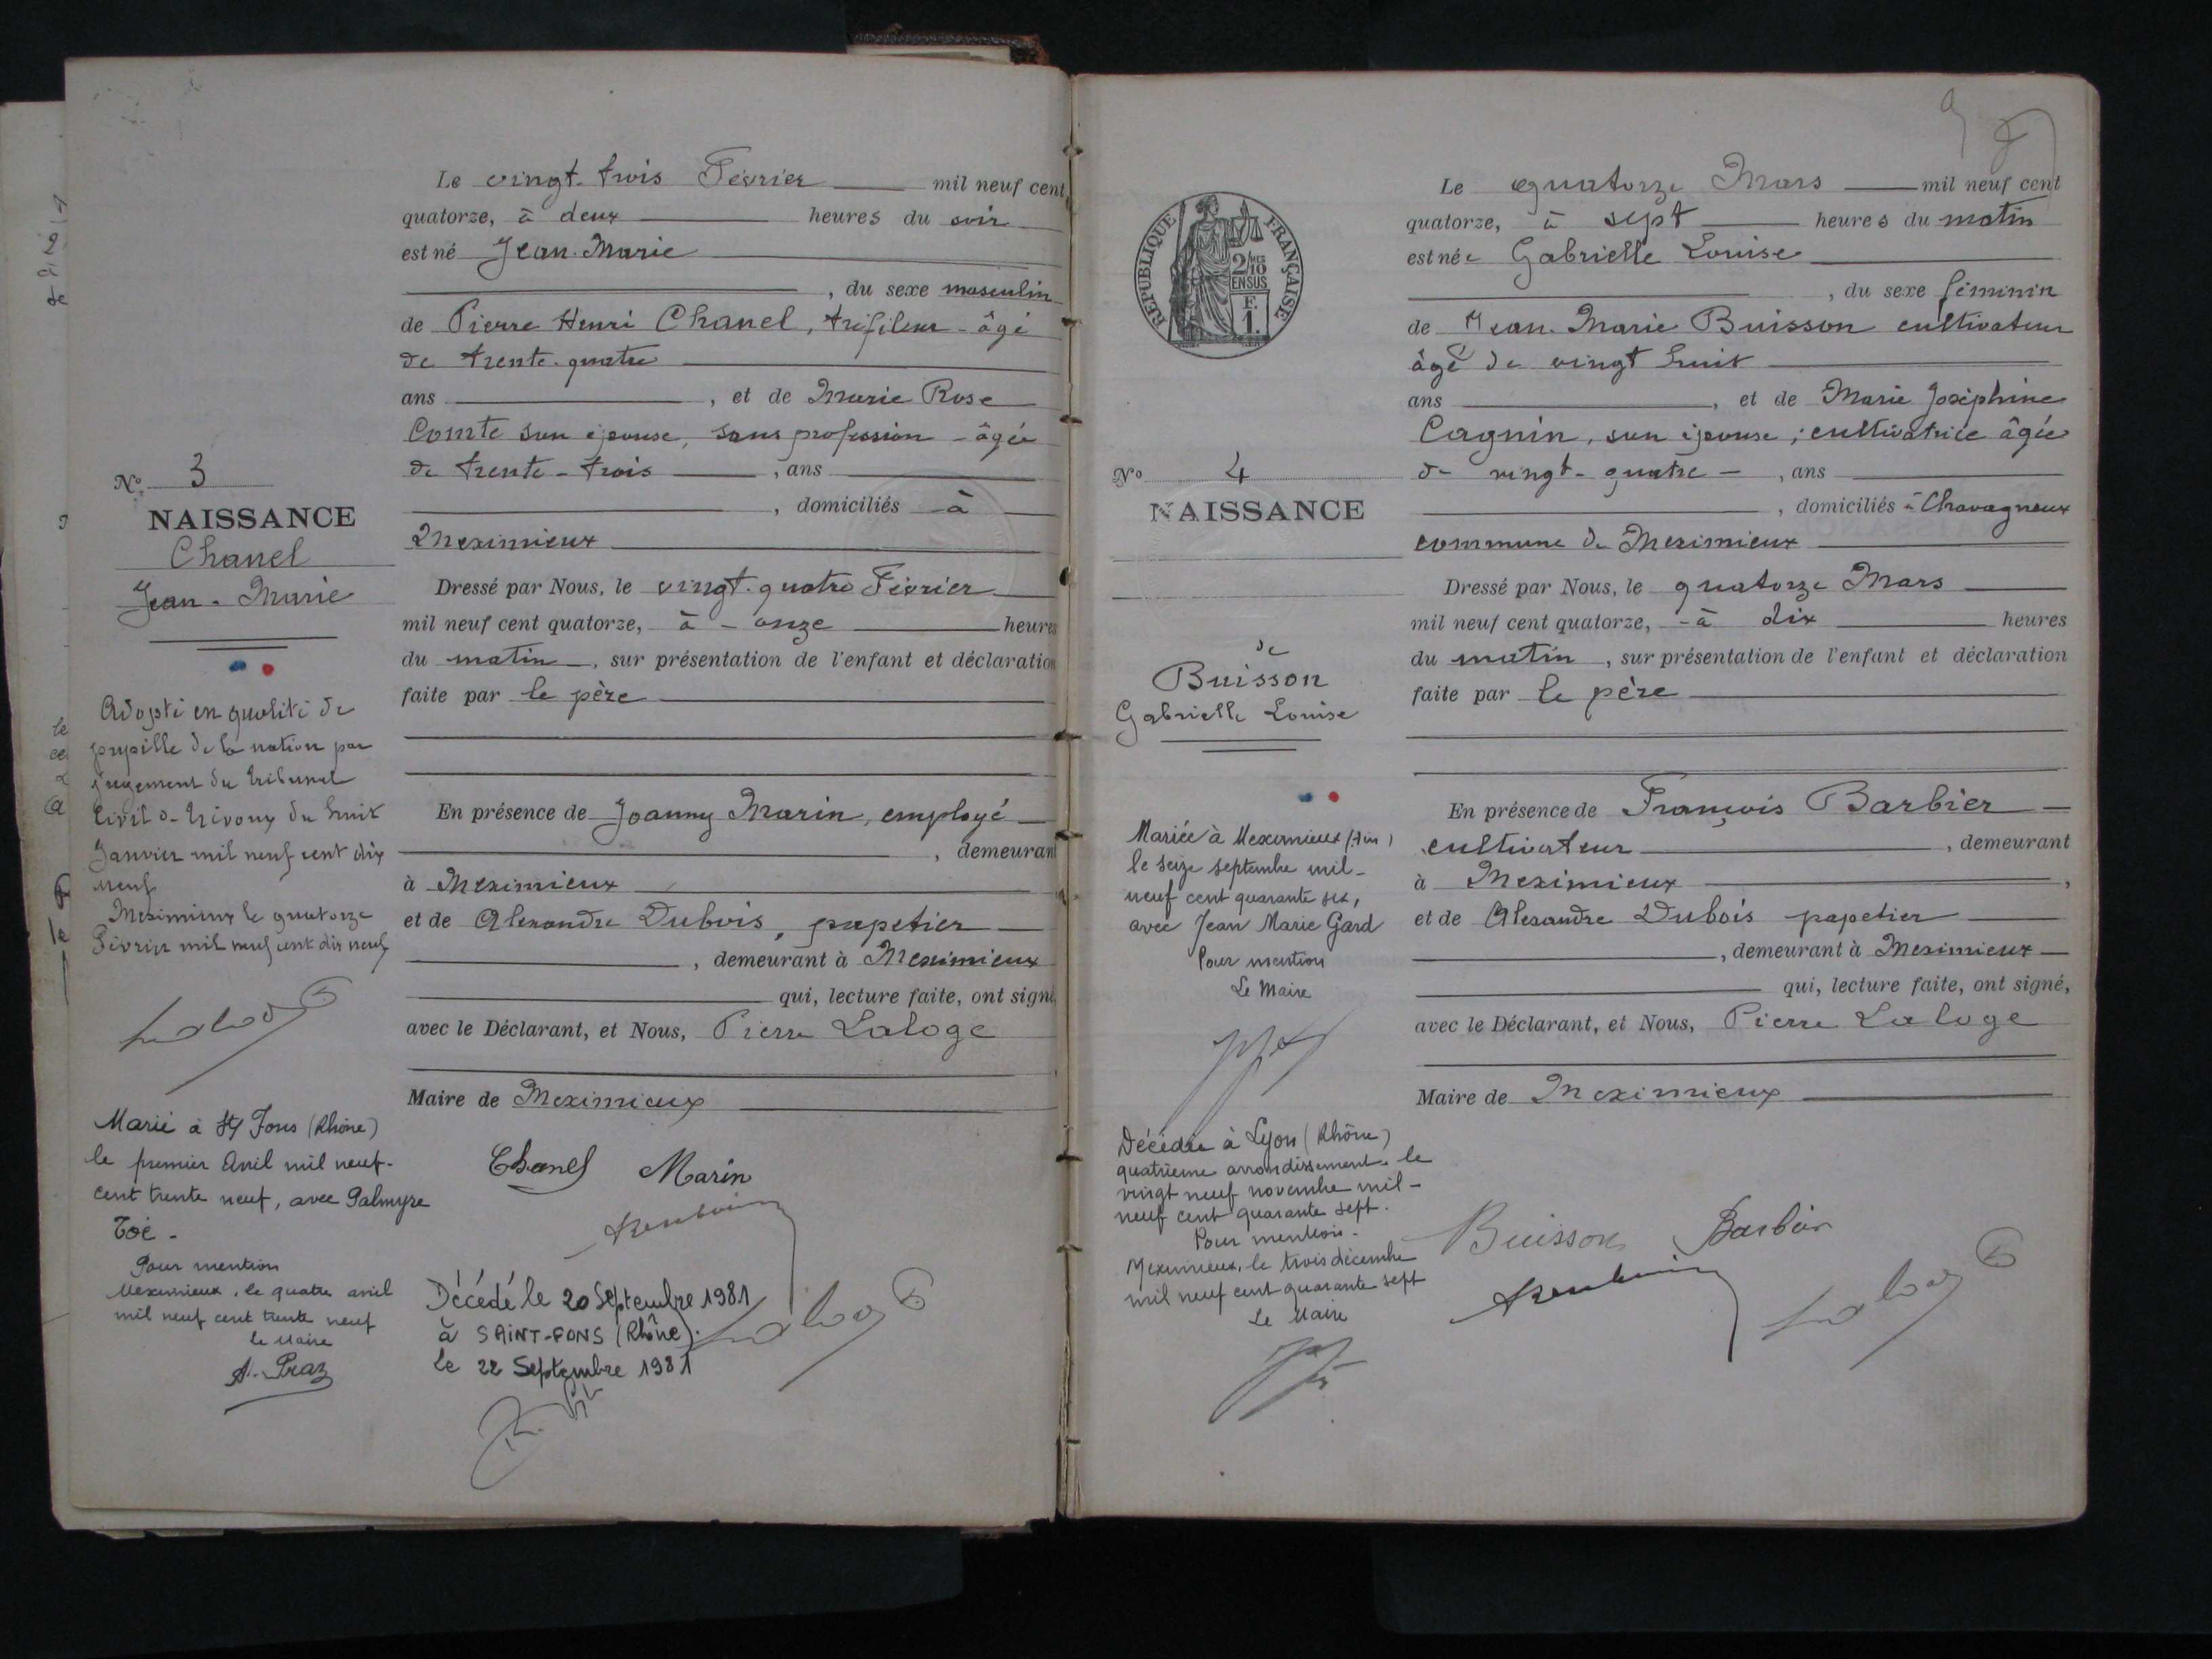 Le vingt-trois Février mil neuf cent
quatorze, à deux heures du soir
est né Jean-Marie
, du sexe masculin
de Pierre Henri Chanel, tréfileur - âgé
de trente-quatre
ans , et de Marie Rose
Comte son épouse, sans profession - âgée
de trente-trois , ans
, domiciliés à
Meximieux
Dressé par Nous, le vingt-quatre Février
mil neuf cent quatorze, à - onze heures
du matin , sur présentation de l'enfant et déclaration
faite par le père
En présence de Joanny Marin, employé
, demeurant
à Meximieux
et de Alexandre Dubois, papetier
, demeurant à Meximieux
qui, lecture faite, ont signé
avec le Déclarant, et Nous, Pierre Laloge
Maire de Meximieux
Chanel Marin
Décédé le 20 Septembre 1981
à SAINT-FONS (Rhône).
Le 22 Septembre 1981
No 3
NAISSANCE
Chanel
Jean-Marie
Adopté en qualité de
pupille de la nation par
jugement du tribunal
Civil de Trévoux du huit
Janvier mil neuf cent dix
neuf
Meximieux le quatorze
Février mil neuf cent dix neuf
Marié à St Fons (Rhône)
le premier Avril mil neuf-
cent trente neuf, avec Palmyre
Pour mention
Meximieux, le quatre avril
mil neuf cent trente neuf
le Maire
A. Praz
RÉPUBLIQUE FRANÇAISE
2/10
EN SUS
F.
1.
Le quatorze Mars mil neuf cent
quatorze, à sept heures du matin
est née Gabrielle Louise
, du sexe féminin
de Jean-Marie Buisson cultivateur
âgé de vingt huit
ans , et de Marie Joséphine
Cagnin, son épouse ; cultivatrice âgée
de vingt-quatre - , ans
, domiciliés à Chavagneux
commune de Meximieux
Dressé par Nous, le quatorze Mars
mil neuf cent quatorze, - à dix heures
du matin , sur présentation de l'enfant et déclaration
faite par le père
En présence de François Barbier
cultivateur , demeurant
à Meximieux ,
et de Alexandre Dubois papetier
, demeurant à Meximieux
qui, lecture faite, ont signé,
avec le Déclarant, et Nous, Pierre Laloge
Maire de Meximieux
Buisson Barbier
No 4
NAISSANCE
de
Buisson
Gabrielle Louise
Mariée à Meximieux (Ain)
le seize septembre mil-
neuf cent quarante six,
avec Jean Marie Gard
Pour mention
Le Maire
Décédée à Lyon (Rhône)
quatrième arrondissement. le
vingt neuf novembre mil-
neuf cent quarante sept.
Pour mention.
Meximieux, le trois décembre
mil neuf cent quarante sept
Le Maire